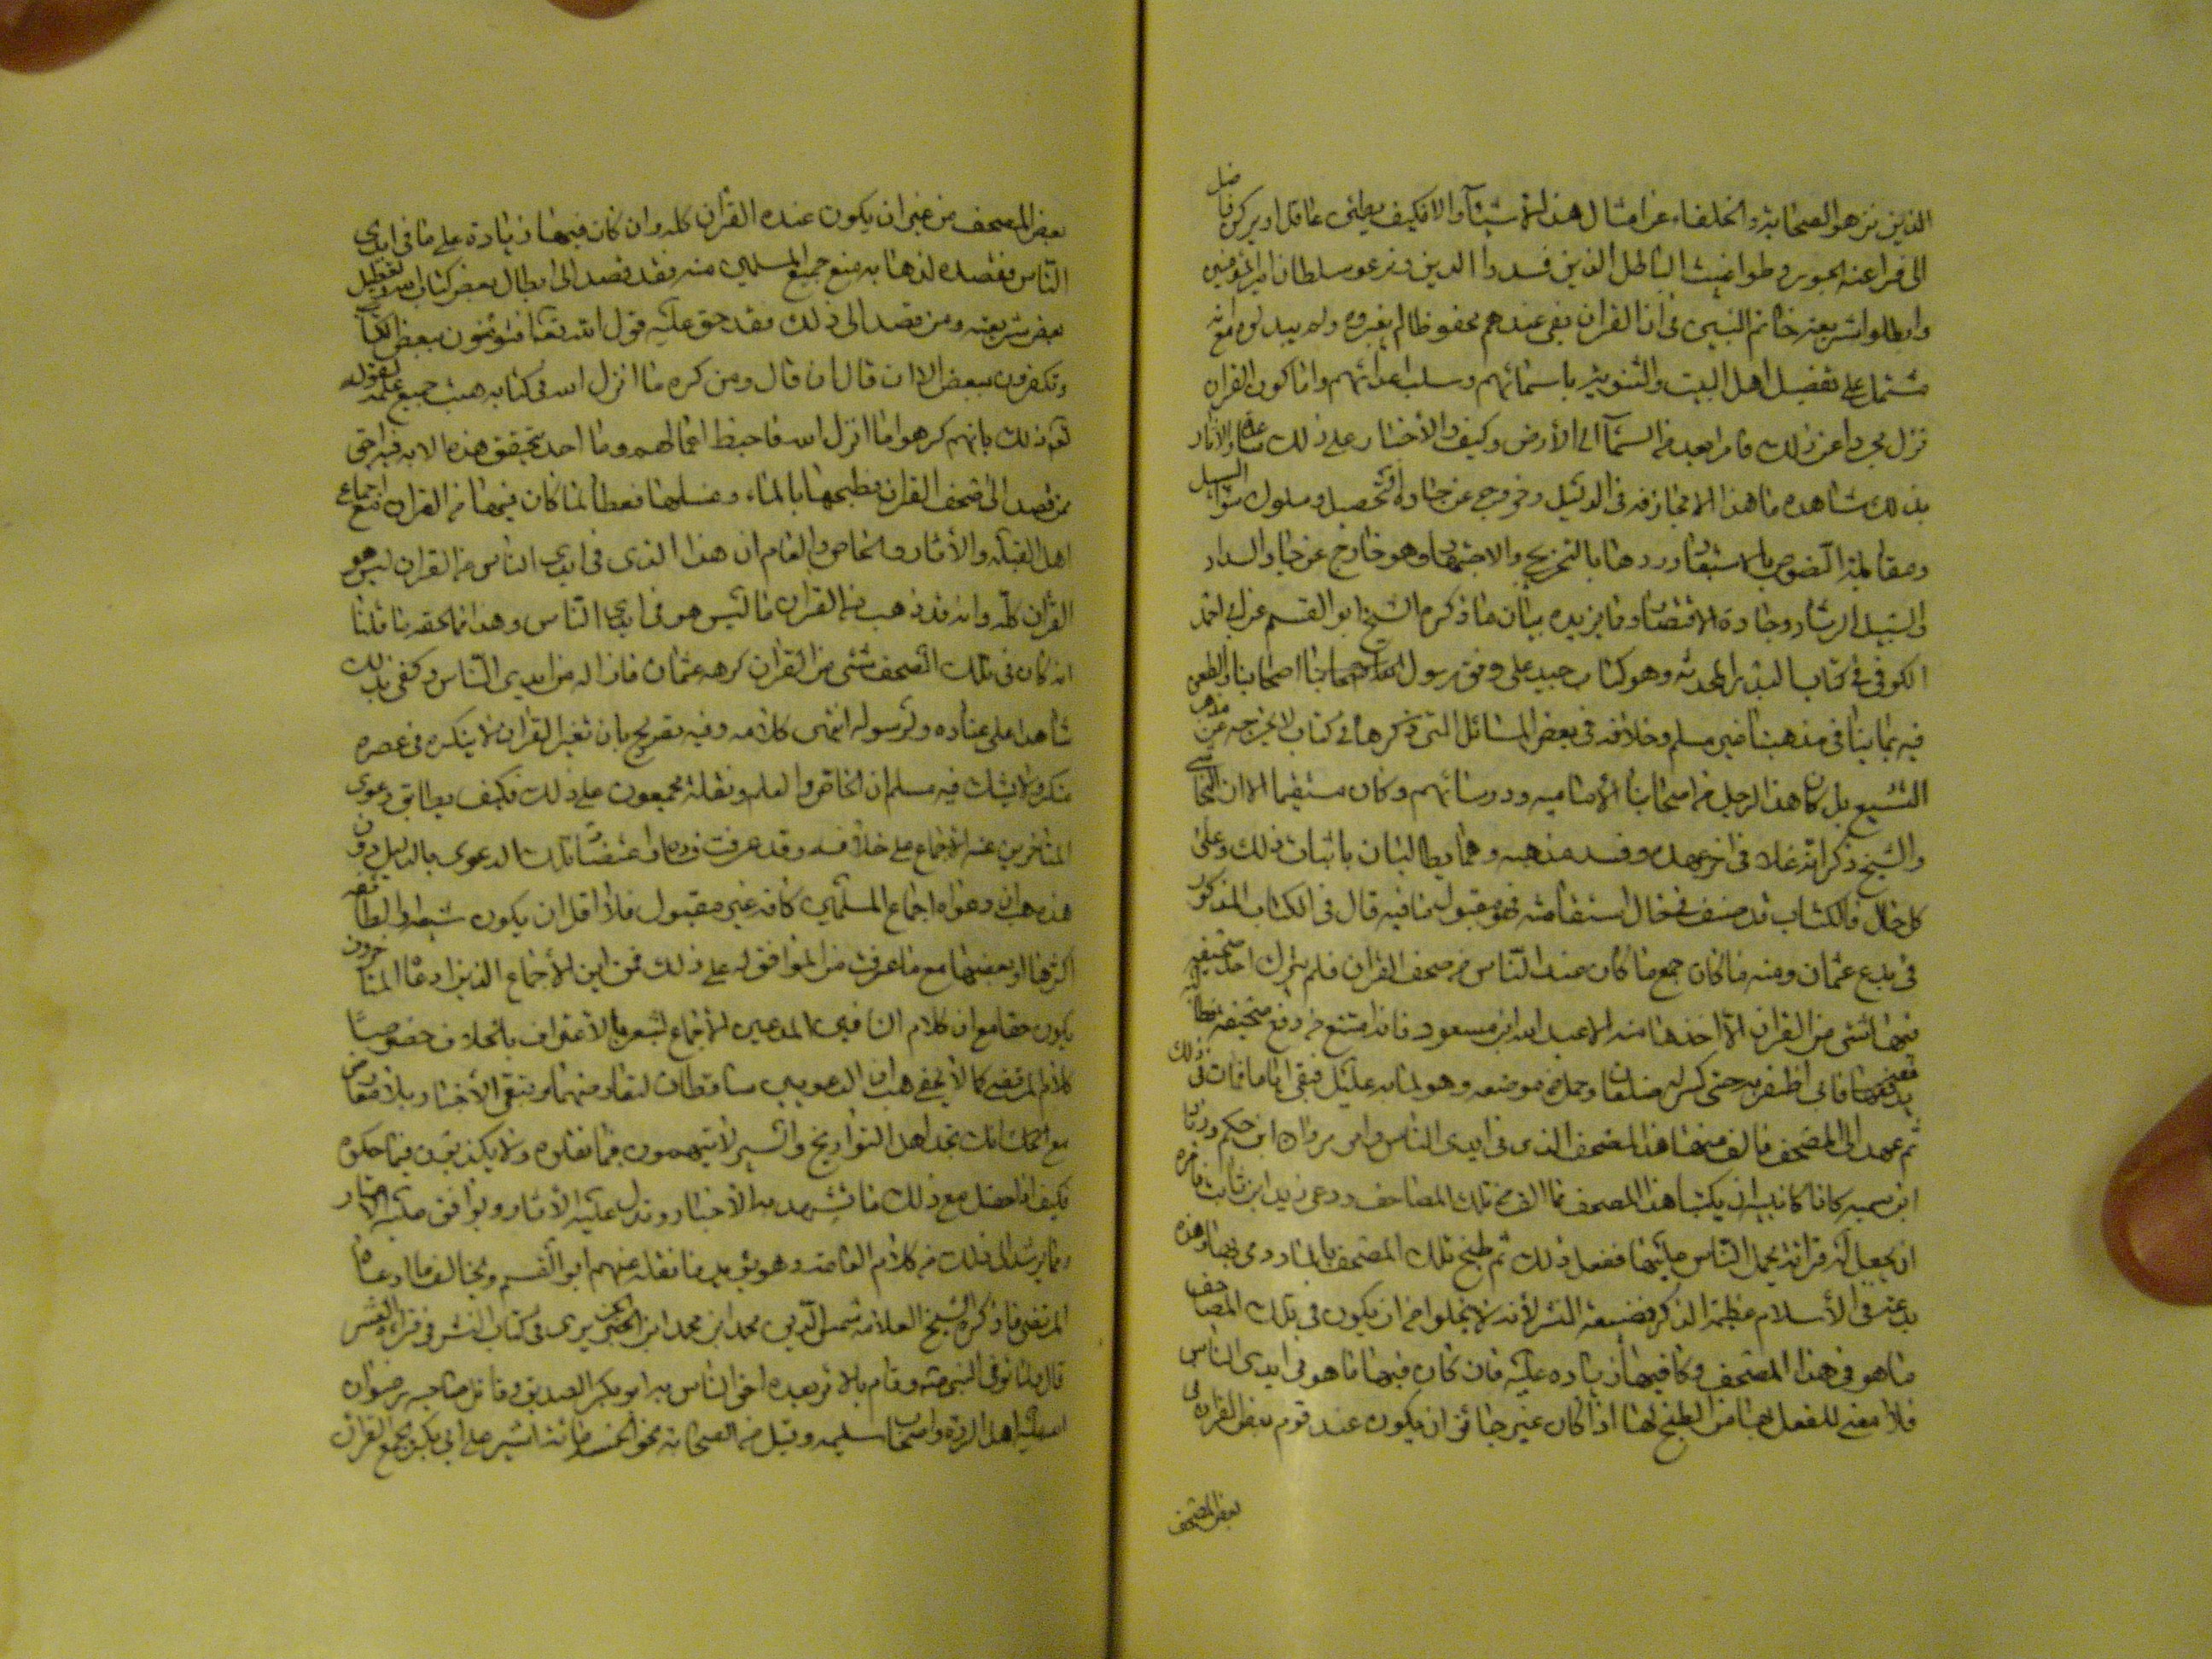 الذين نزهو الصحابة والخلفاء عن امثال هذه الاشياء والا فكيف يطمئن عاقل او يركن فاضل
الى فراعنة الجور وطواغيت الباطل الذين فسدوا الدين ونزعو سلطان امير المؤمنين
وابطلوا شريعة خاتم النبيين في ان القران بقى عندهم محفوظا لم يغيروه ولم يبدلوه مع انه
مشتمل على تفضيل اهل البيت والتنويه باسمائهم وسلب اعدائهم واما كون القران
نزل مجردا عن ذلك فامر ابعد من السماء الى الأرض وكيف والأخبار على ذلك والاثار
بذلك شاهده ما هذا الا مجازفه في الدليل وخروج عن جادة التحصيل وسلوك السبيل
ومقابلة النصوص بالاستبعاد وردها بالتخريج والاجتهاد وهو خارج عن السداد
والسبيل الرشاد وجادة الاقتصاد ومما يزيده بيان ما ذكره الشيخ ابو القسم على بن احمد
الكوفي في كتاب البدع المحدثه وهو كتاب جيد على وفق اصحابنا والطعن
فيه بمباينا في مذهبنا غير مسلم وخلافه في بعض المسائل التى ذكرها في كتاب لا يخرجه عن مذهب
التشيع بل كان هذا الرجل من اصحابنا الأماميه ورؤسائهم وكان مستقيما الا ان النجاشي
والشيخ ذكر انه غلا في اخر عمره وفسد مذهبه وهما يطالبان باثبات ذلك وعلى
كل حال فالكتاب قد صنف في حال استقامته فهو مقبول ما فيه قال في الكتاب المذكور
في بدع عثمان ومنه ما كان جمع ما كان عند الناس من صحف القران فلم يترك احد صحيفه
فيها شئ من القران الا اخذها منه الا عبد الله ابن مسعود فانه امتنع من دفع صحيفته
فابى فضربه حتى كسر له ضلعان وحمل من موضعه وهو لما به عليل فبقى اياما فمات في ذلك
ثم عمد الى المصحف فالف منها هذا المصحف الذى في ايدى الناس وامر مروان ابن حكم وزياد
ابن سميه كانا كاتبيه ان يكتبا هذا المصحف مما الف من تلك المصاحف ودعى زيد ابن ثابت فامره
ان يجعل له قرائة يحمل الناس عليها ففعل ذلك ثم طبخ تلك المصحف بالماء ورمى بها وهذه
بدعة في الأسلام عظيمة الذكر فضيعة النشر لأنه لا يخلوا من ان يكون في تلك المصاحف
ما هو في هذا المصحف وكا فيها زياده عليه فان كان فيها ما هو في ايدى الناس
فلا معنى للفعل بها من الطبخ لها اذا كان غير جائز ان يكون عند قوم بعض القران
بعض المصحف
بعض المصحف من غير ان يكون عنده القران كله وان كان فيها زيادة على ما في ايدى
الناس فقصده لذهابه منع جميع المسلمين منه فقد قصد الى ابطال بعض كتاب الله وتعطيل
بعض شريعته ومن قصد الى ذلك فقد حق عليه قول الله تعالى افتؤمنون ببعض الكتاب
وتكفرون ببعض الى ان قال ان قال ومن كره ما انزل الله في كتابه حبط جميع عمله لقوله
تعم ذلك بانهم كرهوا ما انزل الله فاحبط اعمالهم وما احد يحقق هذه الايه فيه احق
ممن قصد الى صحف القران فطبخها بالماء وغسلها معطلا لما كان فيها من القران مع اجماع
اهل القبلة والأثار والخاص والعام ان هذا الذى في ايدى الناس من القران ليس هو
القران كله وانه قد ذهب من القران ما ليس هو في ايدى الناس وهذا مما يحقه ما قلنا
انه كان في تلك الصحف شئ من القران كرهه عثمان فازاله من ايدى الناس وكفى بذلك
شاهدا على عناده ولرسوله انتهى كلامه وفيه تصريح بان تغير القران لا ينكره في عصره
منكر ولا يشك فيه مسلم ان الخاص والعام ونقلة مجمعون على ذلك فكيف يطابق دعوى
المتاخرين عنه الأجماع على خلافه وقد عرفت تلك الدعوى بالدليل دون
هذه هب ان دعواه اجماع المسلمين كافه غير مقبول فلا اقل ان يكون شيعه والطائفه
اكثرها او بعضها مع ما عرفت من الموافق له على ذلك فمن اين الأجماع الذين ادعاه المتاخرون
يكون حقا مع ان كلام النافين المدعين للأجماع تشعر بالأعتراف بالخلاف خصوصا
كلام المرتضى كما لا يخفى هب ان الدعويين ساقطان لتعارضهما وتبقى الأخبار بلا معارض
مع انك تجد اهل التواريخ والسير لا يتهمون فيما نقلوه ولا يكذبون فيما حكوه
فكيف اذا حصل مع ذلك ما تشهد به الأخبار وتدل عليه الأثار ويوافق عليه
ومما يرشد الى ذلك من كلام العامة وهو يؤيد ما نقله عنهم ابو القسم ويخالف ما ادعاه
المرتضى ما ذكره الشيخ العلامه شمس الدين محمد ابن محمد ابن الجزرى في كتاب النشر في قراءة العشر
قال لما توفي النبي وقام بالامر بعده احق الناس به ابو بكر الصديق وقاتل صاحبه رضوان
الله عليه اهل الردة واصحاب مسيلمه وقتل من الصحابة نحو الخمسمائة اشير على ابى بكر بجمع القران